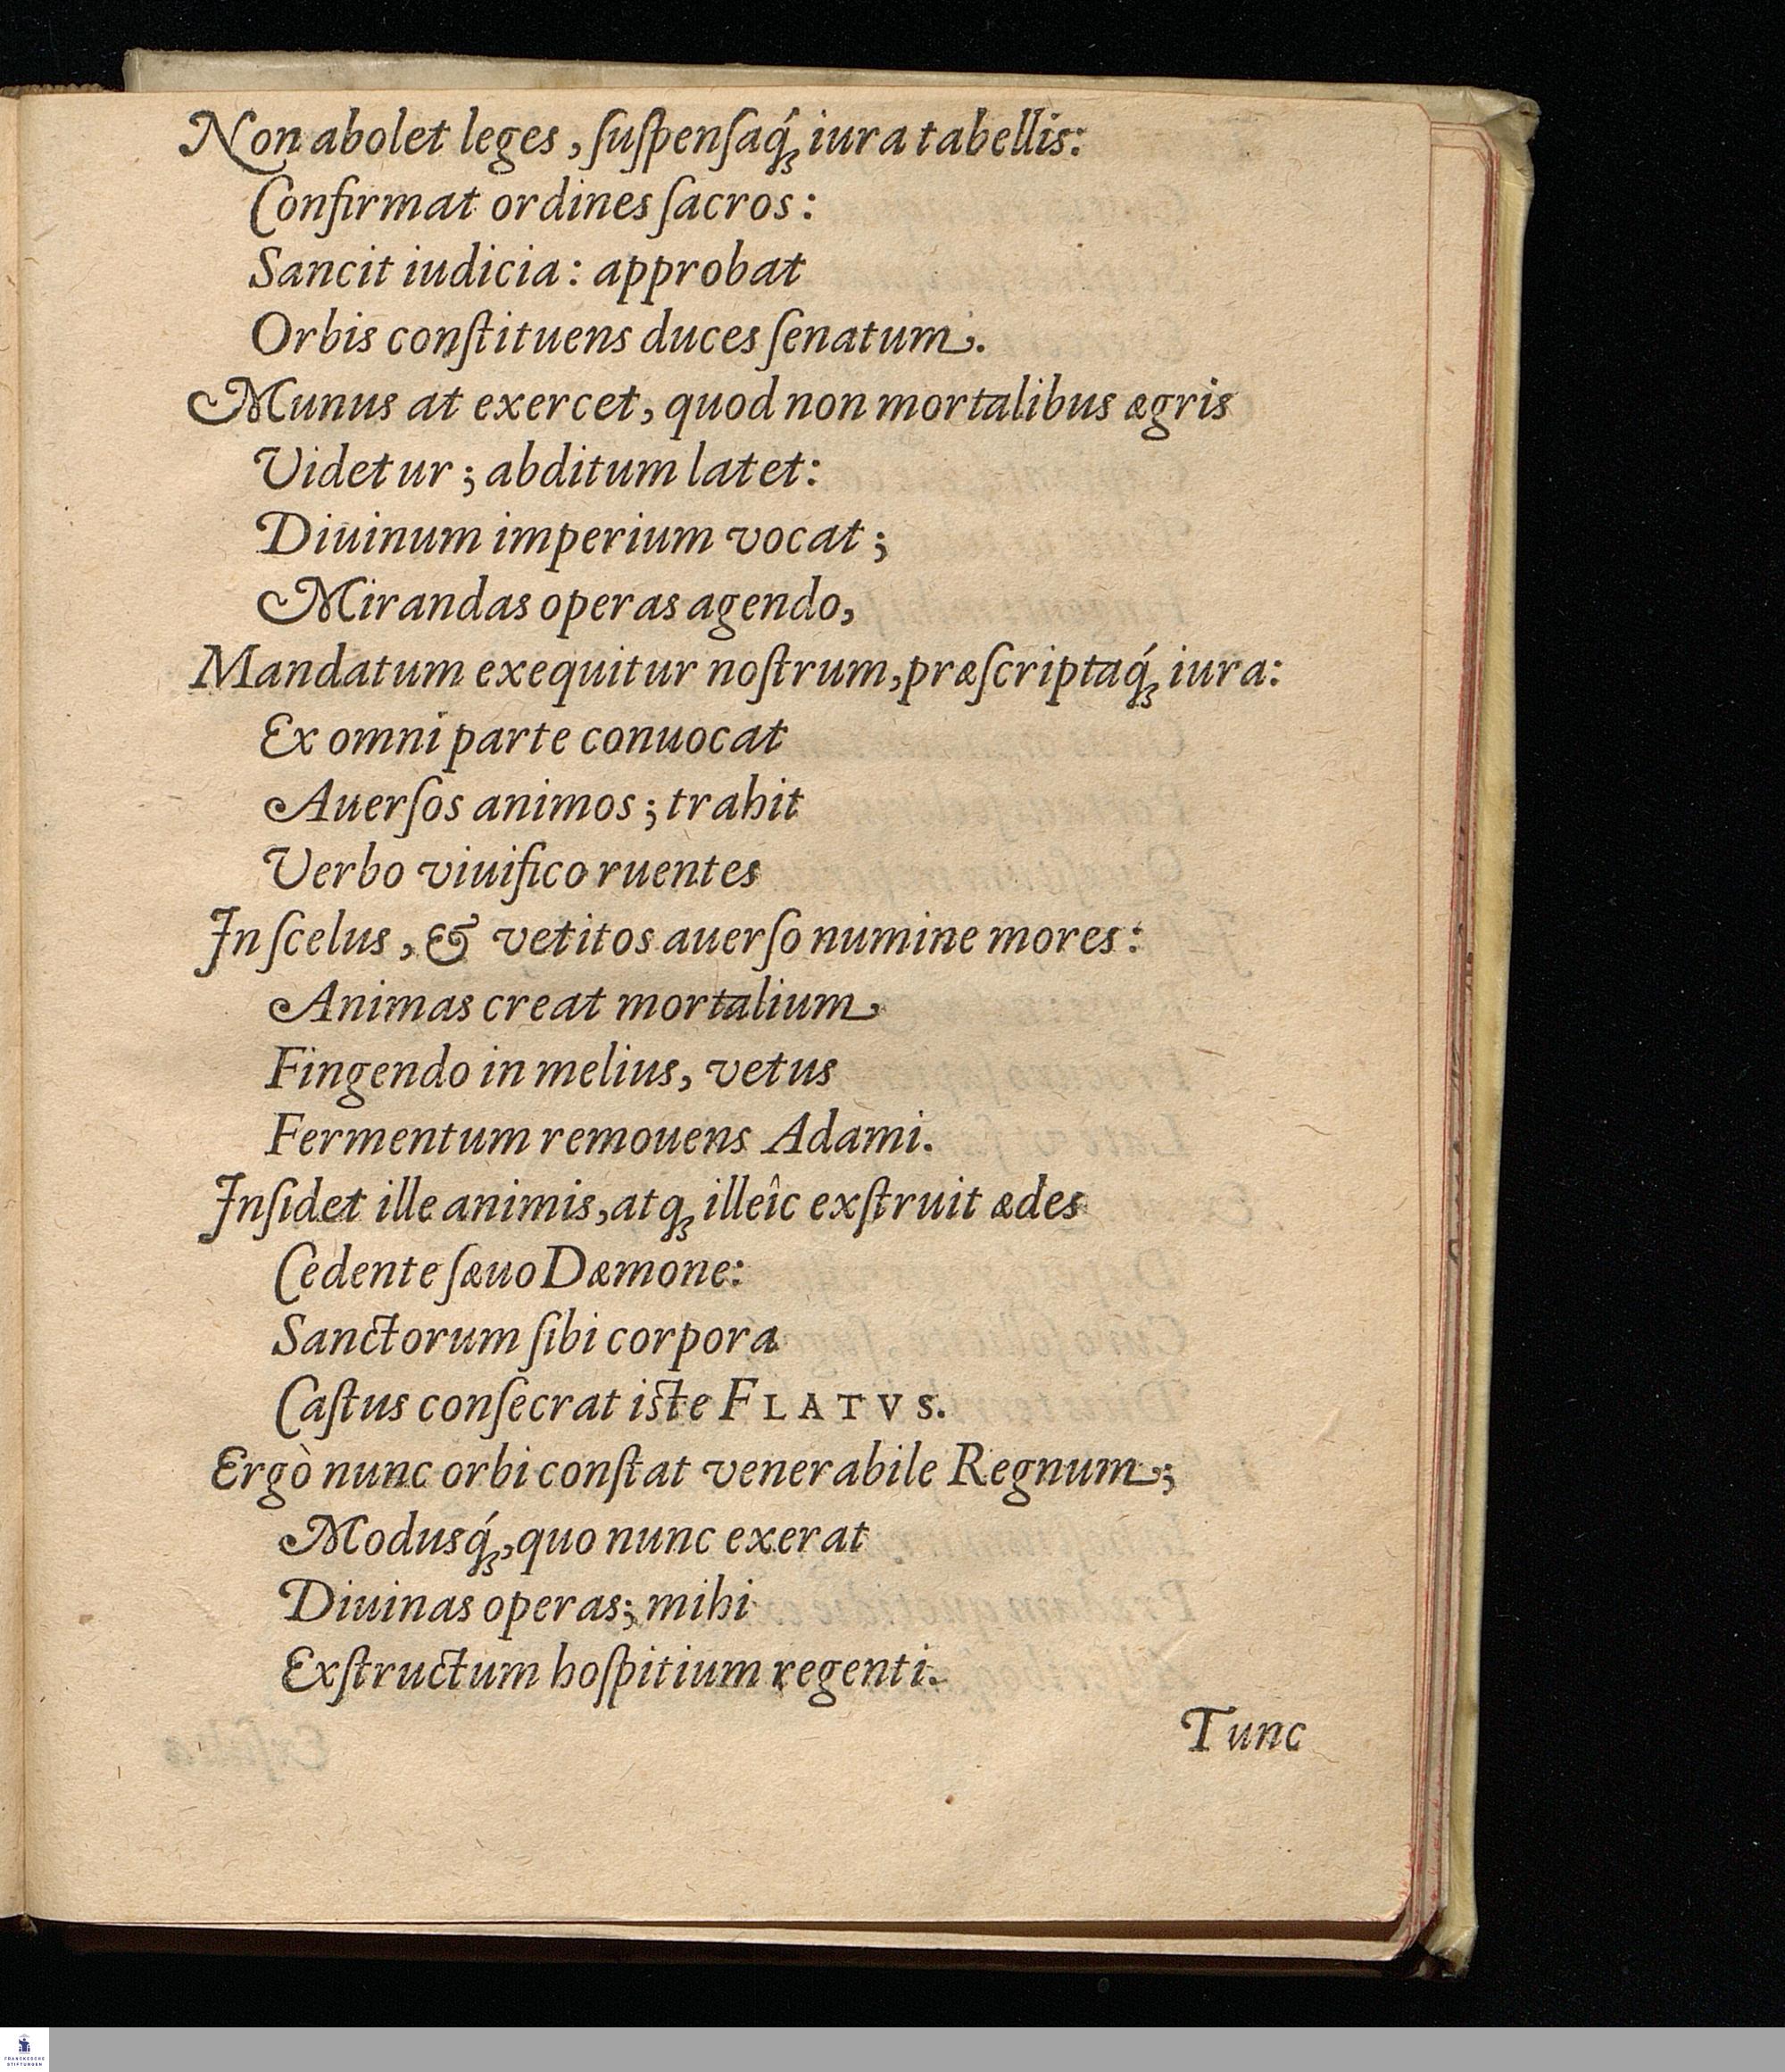 Non abolet leges, ſuſpenſaq́ꝫ iura tabellis:
Confirmat ordines ſacros:
Sancit iudicia: approbat
Orbis conſtituens duces ſenatum.
Munus at exercet, quod non mortalibus ægris
Videtur; abditum latet:
Diuinum imperium vocat;
Mirandas operas agendo,
Mandatum exequitur noſtrum, præſcriptaq́ꝫ iura:
Ex omni parte conuocat
Auerſos animos; trahit
Verbo viuifico ruentes
In ſcelus, & vetitos auerſo numine mores:
Animas creat mortalium
Fingendo in melius, vetus
Fermentum remouens Adami.
Inſidet ille animis, atqꝫ illeîc exſtruit ædes
Cedente ſæuo Dæmone:
Sanctorum ſibi corpora
Caſtus conſecrat iſte FLATVS.
Ergò nunc orbi conſtat venerabile Regnum;
Modusq́ꝫ, quo nunc exerat
Diuinas operas; mihi
Exſtructum hoſpitium regenti.
Tunc
FRANCKESCHE
STIFTUNGEN